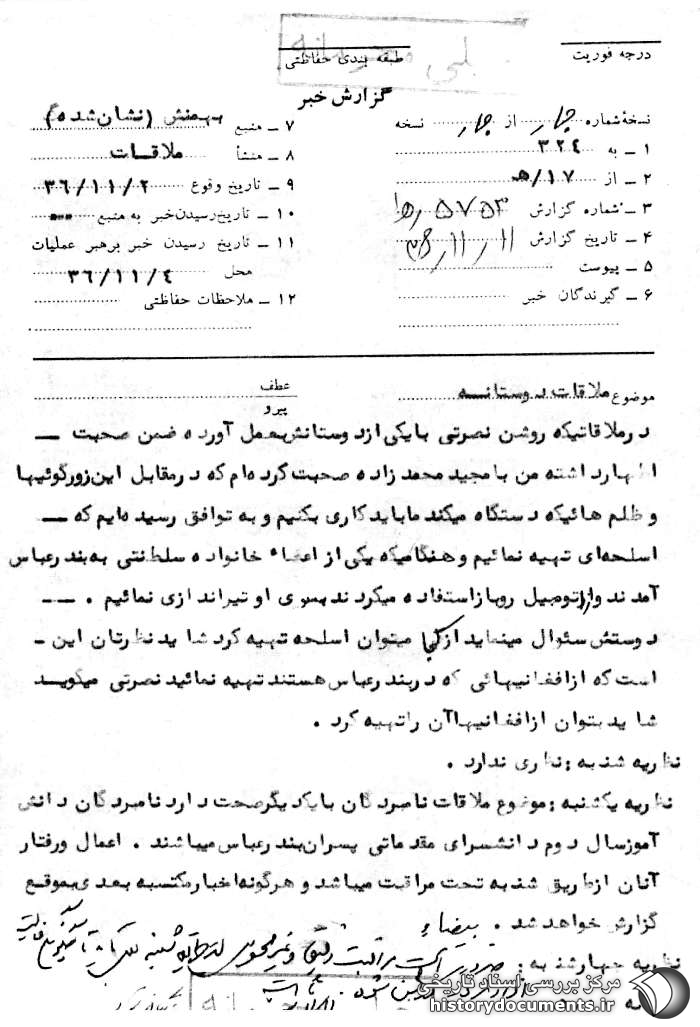 درجه فوریت
طبقه بندی حفاظتی
گزارش خبر
نسخهٔ شماره چهار از چهار نسخه
۱ – به ۳۲۴
۲ – از ۱۷/ه‍
۳ – شماره گزارش ۵۷۵۳
۴ – تاریخ گزارش ۳۶/۱۱/۱۱
۵ – پیوست
۶ – گیرندگان خبر
۷ – منبع بهمنش (نشان شده)
۸ – منشأ ملاقات
۹ – تاریخ وقوع ۳۶/۱۱/۲
۱۰ – تاریخ رسیدن خبر به منبع ۰۰۰
۱۱ – تاریخ رسیدن خبر برهبر عملیات
محل ۳۶/۱۱/۴
۱۲ – ملاحظات حفاظتی
موضوع ملاقات دوستانه
عطف
پیرو
درملاقاتیکه روشن نصرتی بایکی ازدوستانش بعمل آورده ضمن صحبت –
اظهارداشته من بامجید محمدزاده صحبت کرده ام که درمقابل این زورگوئیها
و ظلم هائیکه دستگاه میکند مابایدکاری بکنیم و به توافق رسیده ایم که –
اسلحه ای تهیه نمائیم وهنگامیکه یکی از اعضاء خانواده سلطنتی به بندرعباس
آمدند وازاتومبیل روبازاستفاده میکردند بسوی او تیراندازی نمائیم . –
دوستش سئوال مینماید ازکجا میتوان اسلحه تهیه کرد شاید نظرتان این –
است که ازافغانیهائی که دربندرعباس هستند تهیه نمائید نصرتی میگویـد
شاید بتوان ازافغانیهاآن راتهیه کرد .
نظریه شنبه : نظری ندارد .
نظریه یکشنبه : موضوع ملاقات نامبردگان بایکدیگرصحت دارد نامبردگان دانش
آموزسال دوم دانشسرای مقدماتی پسران بندرعباس میباشند . اعمال ورفتار
آنان ازطریق شنبه تحت مراقبت میباشد و هرگونه اخبارمکتسبه بعدی بموقع
گزارش خواهد شد . بیضاء
نظریه چهارشنبه : ضروری است مراقبت دقیق و غیرمحسوس
مرکز بررسی اسناد تاریخی
historydocuments.ir